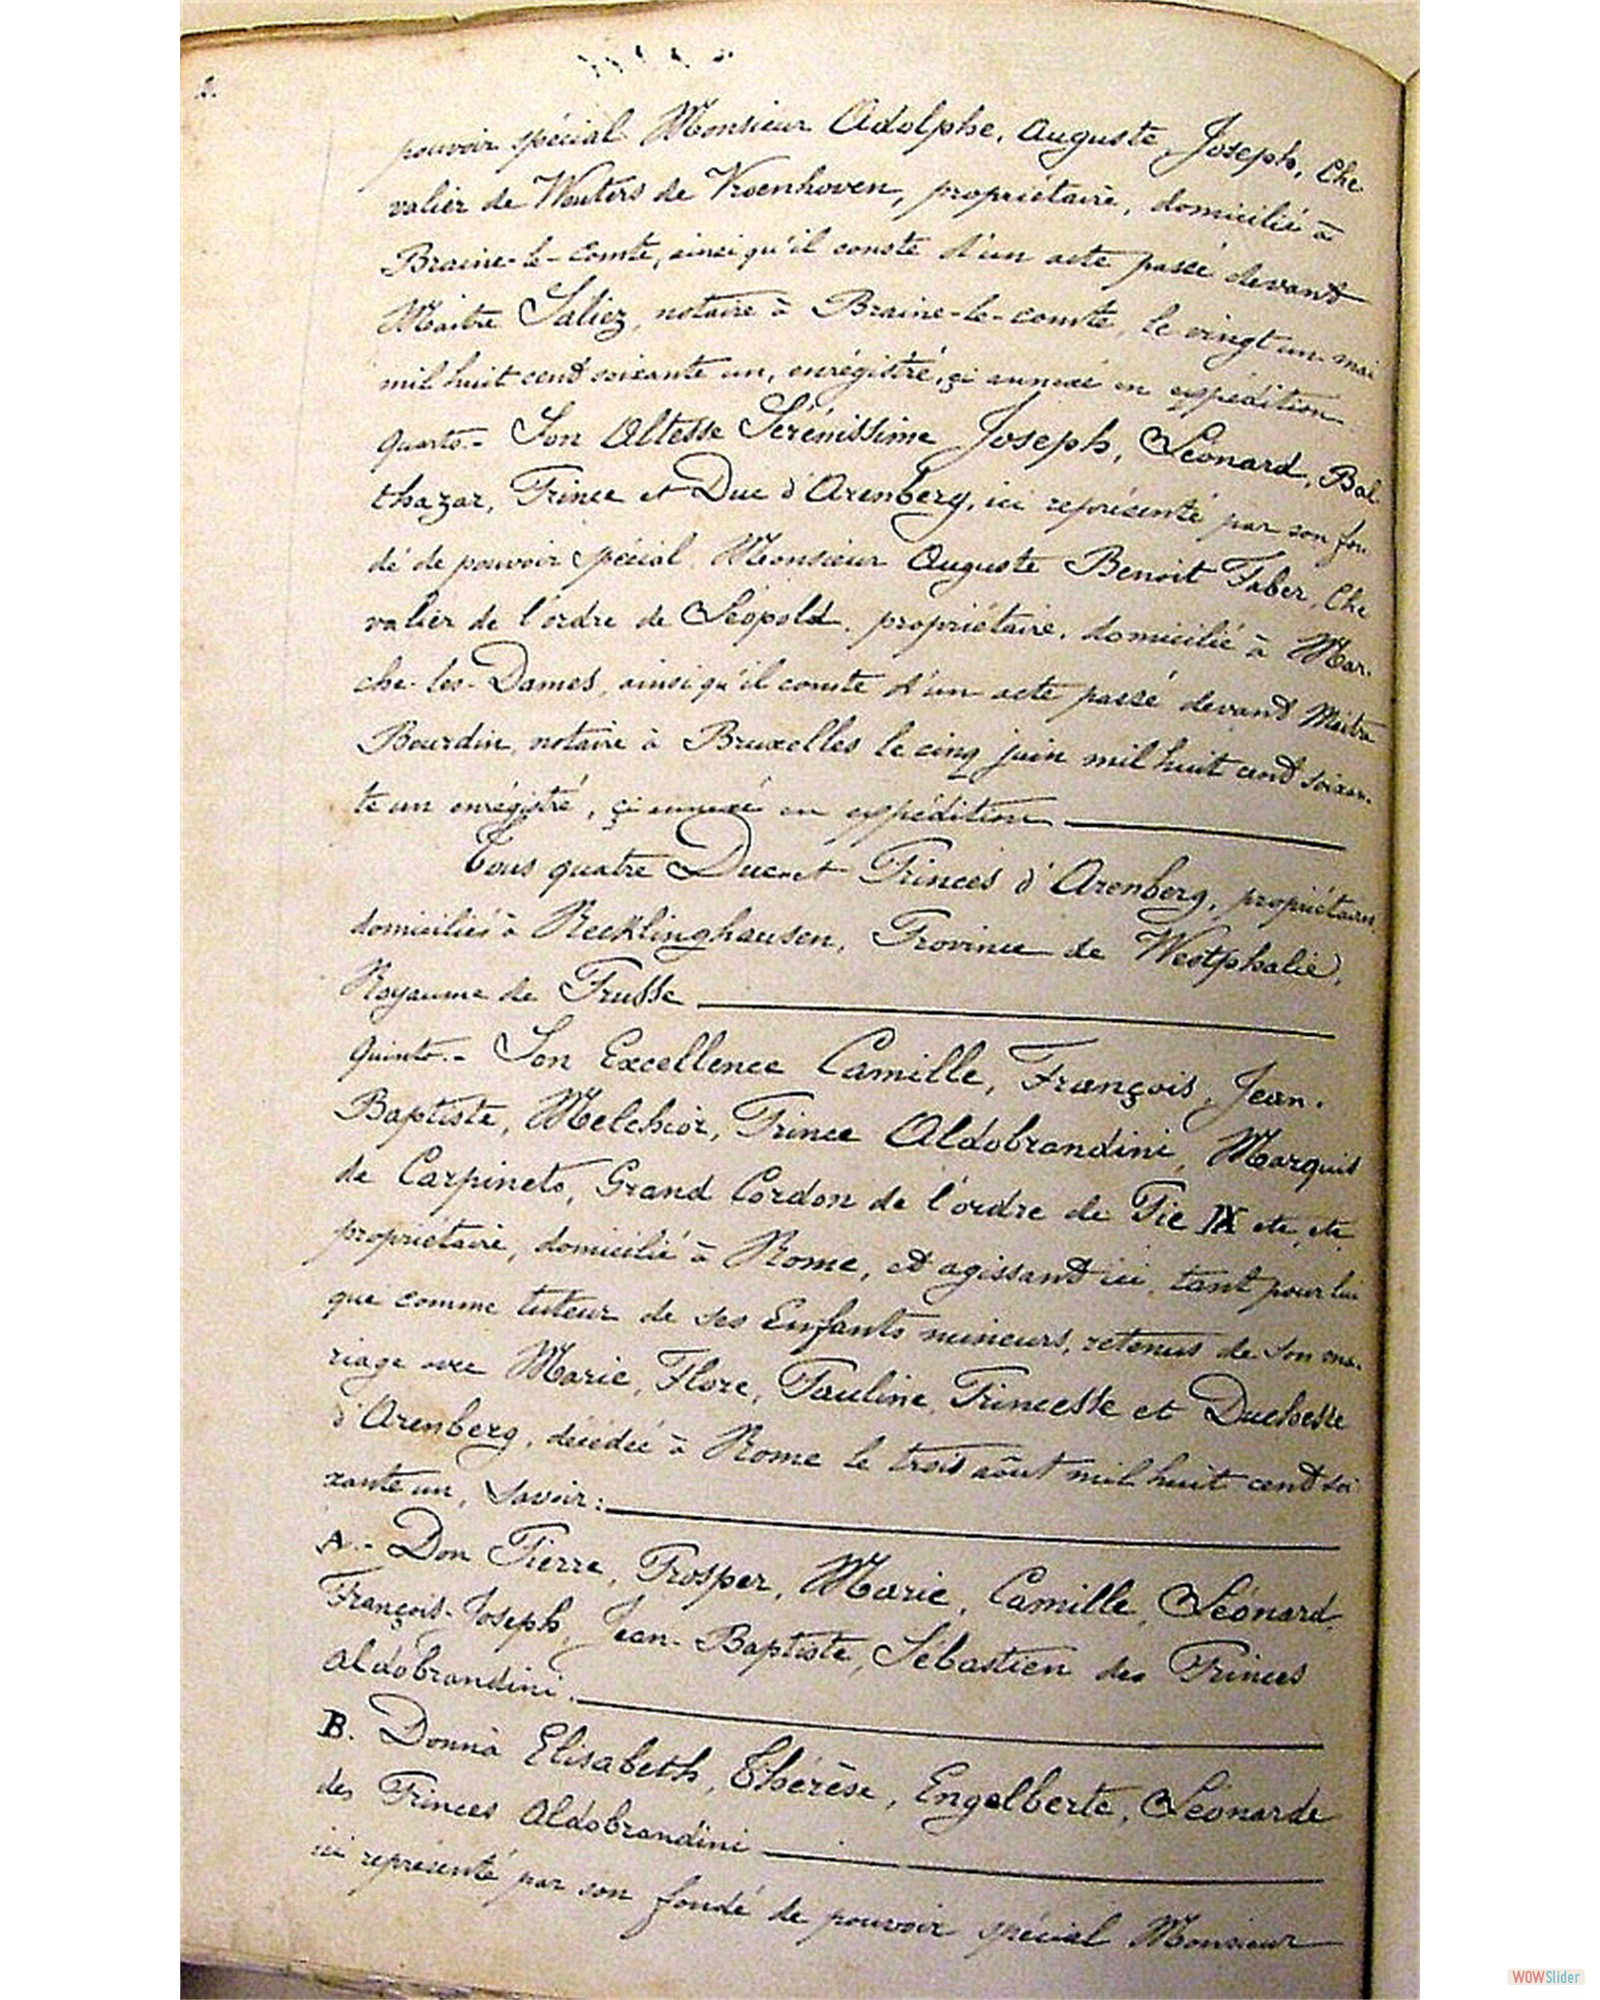 2.
pouvoir spécial Monsieur Adolphe, Auguste, Joseph, Che
valier de Wouters de Vroenhoven, propriétaire, domicilié à
Braine-le-Comte, ainsi qu'il conste d'un acte passé devant
Maitre Saliez, notaire à Braine-le-comte, le vingt un mai
mil huit cent soixante un, enrégistré, çi annexé en expédition.
Quarto.- Son Altesse Sérénissime Joseph, Léonard, Bal
thazar, Prince et Duc d'Arenberg, ici représenté par son fon
dé de pouvoir spécial, Monsieur Auguste Benoit Faber, Che
valier de l'ordre de Léopold, propriétaire, domicilié à Mar-
che-les-Dames, ainsi qu'il conste d'un acte passé devant Maitre
Bourdin, notaire à Bruxelles le cinq juin mil huit cent soixan-
te un enrégistré, çi annexé en expédition
Tous quatre Ducs et Princes d'Arenberg, propriétaires,
domiciliés à Recklinghausen, Province de Westphalie,
Royaume de Prusse
Quinto.- Son Excellence Camille, François, Jean-
Baptiste, Melchior, Prince Aldobrandini, Marquis
de Carpineto, Grand Cordon de l'ordre de Pie IX etc, etc,
propriétaire, domicilié à Rome, et agissant ici, tant pour lui
que comme tuteur de ses Enfants mineurs, retenus de son ma-
riage avec Marie, Flore, Pauline, Princesse et Duchesse
d'Arenberg, décédée à Rome le trois aôut mil huit cent soi
xante un, savoir:
A.- Don Pierre, Prosper, Marie, Camille, Léonard,
François-Joseph, Jean-Baptiste, Sébastien des Princes
Aldobrandini.
B. Donna Elisabeth, Thérèse, Engelberte, Léonarde
des Princes Aldobrandini
ici représenté par son fondé de pouvoir spécial Monsieur
WOWSlider